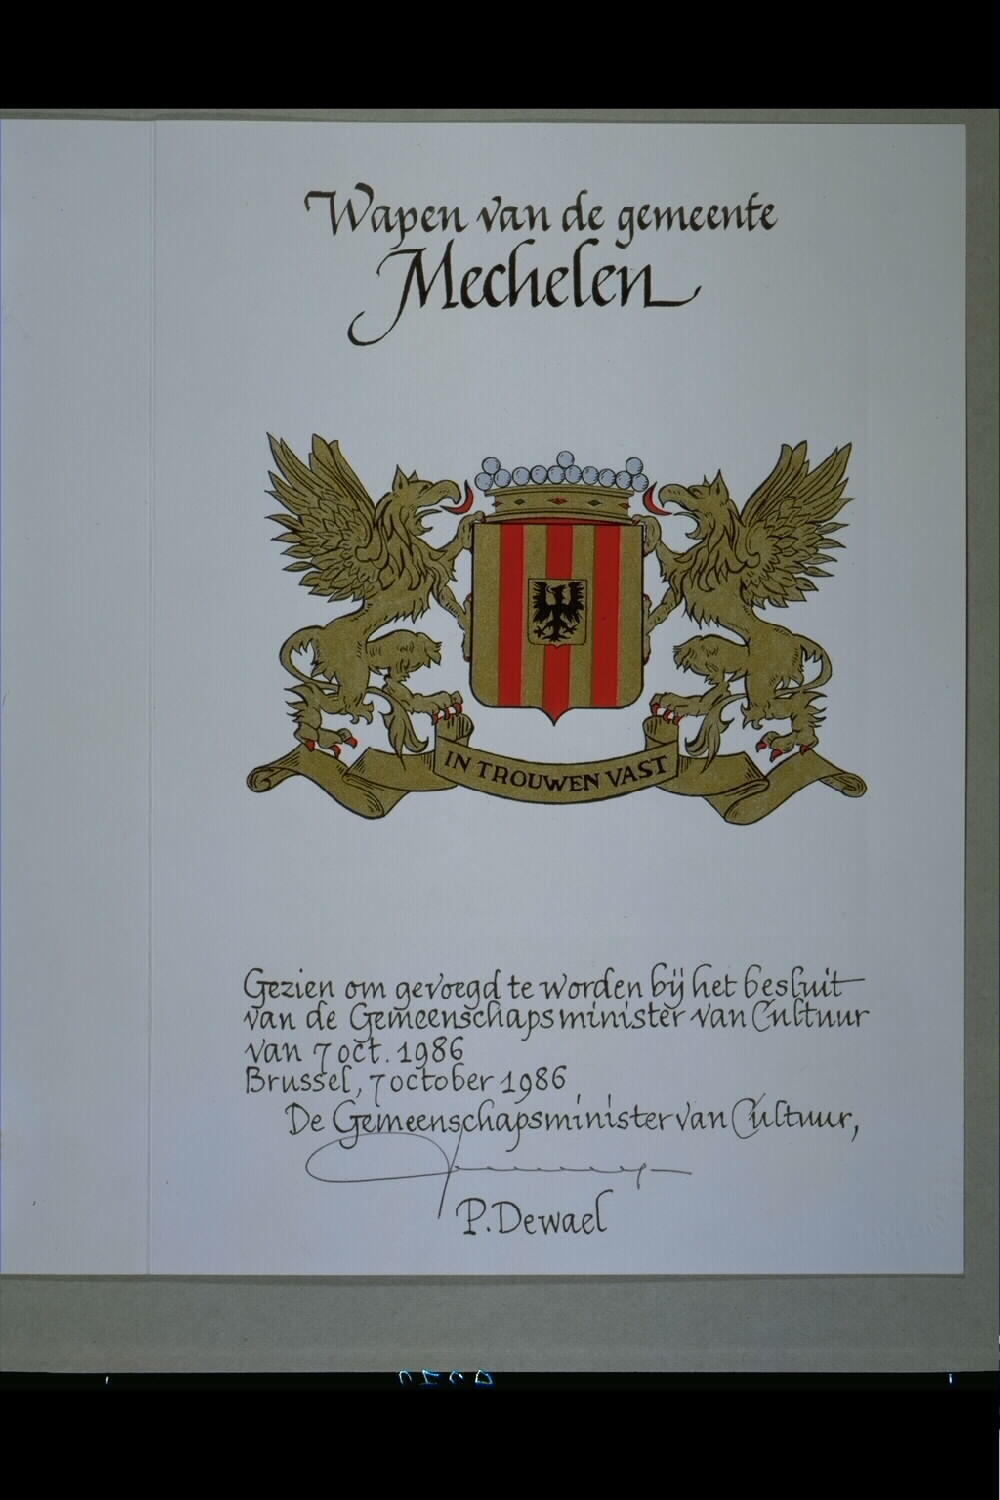 Wapen van de gemeente
Mechelen
IN TROUWEN VAST
Gezien om gevoegd te worden bij het besluit
van de Gemeenschapsminister van Cultuur
van 7 oct. 1986
Brussel, 7 october 1986
De Gemeenschapsminister van Cultuur,
P. Dewael